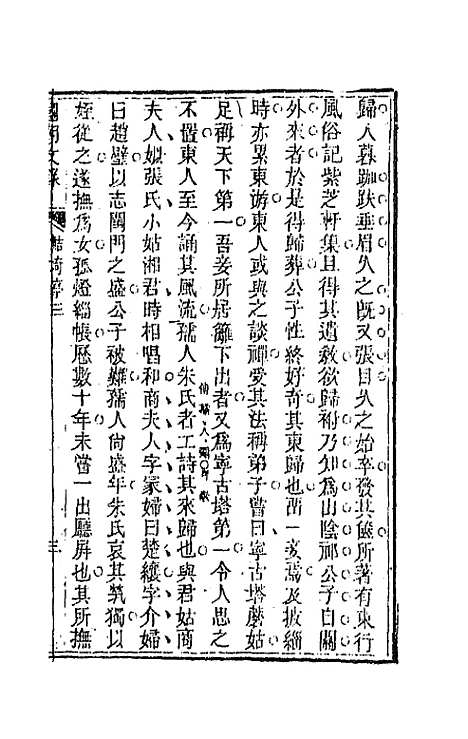 歸入暮跏趺垂眉久之旣又張目久之始卒發其篋所著有東行
風俗記紫芝軒集且得其遺敎欲歸祔乃知爲山陰祁公子自關
外來者於是得歸葬公子性終好奇其東歸也西一妾焉及披緇
時亦累東游東人或與之談禪受其法稱弟子嘗曰寧古塔蘑菇
足稱天下第一吾妾所居籬下出者又爲寧古塔第一令人思之
不置東人至今誦其風流孺人朱氏者工詩其來歸也與君姑商
夫人姒張氏小姑湘君時相唱和商夫人字冢婦曰楚纕字介婦
曰趙璧以志閨門之盛公子被難孺人尙盛年朱氏哀其煢獨以
姪從之遂撫爲女孤燈緇帳歷數十年未嘗一出廳屏也其所撫
國朝文錄
鮚埼亭三
三